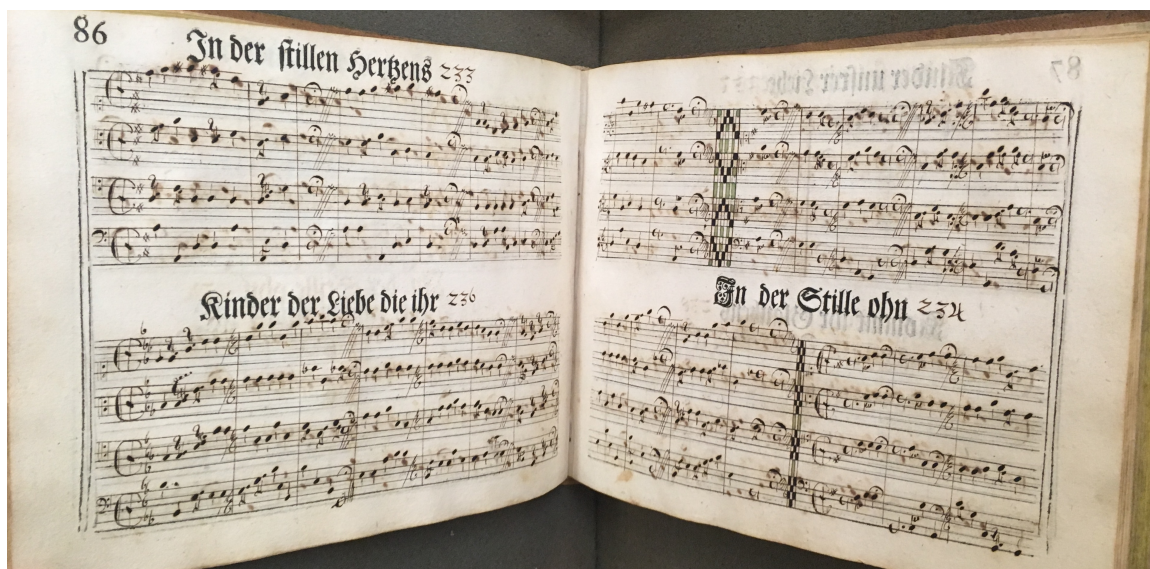 86
In der stillen Hertzens 233
Kinder der Liebe die ihr 236
In der Stille ohn 234